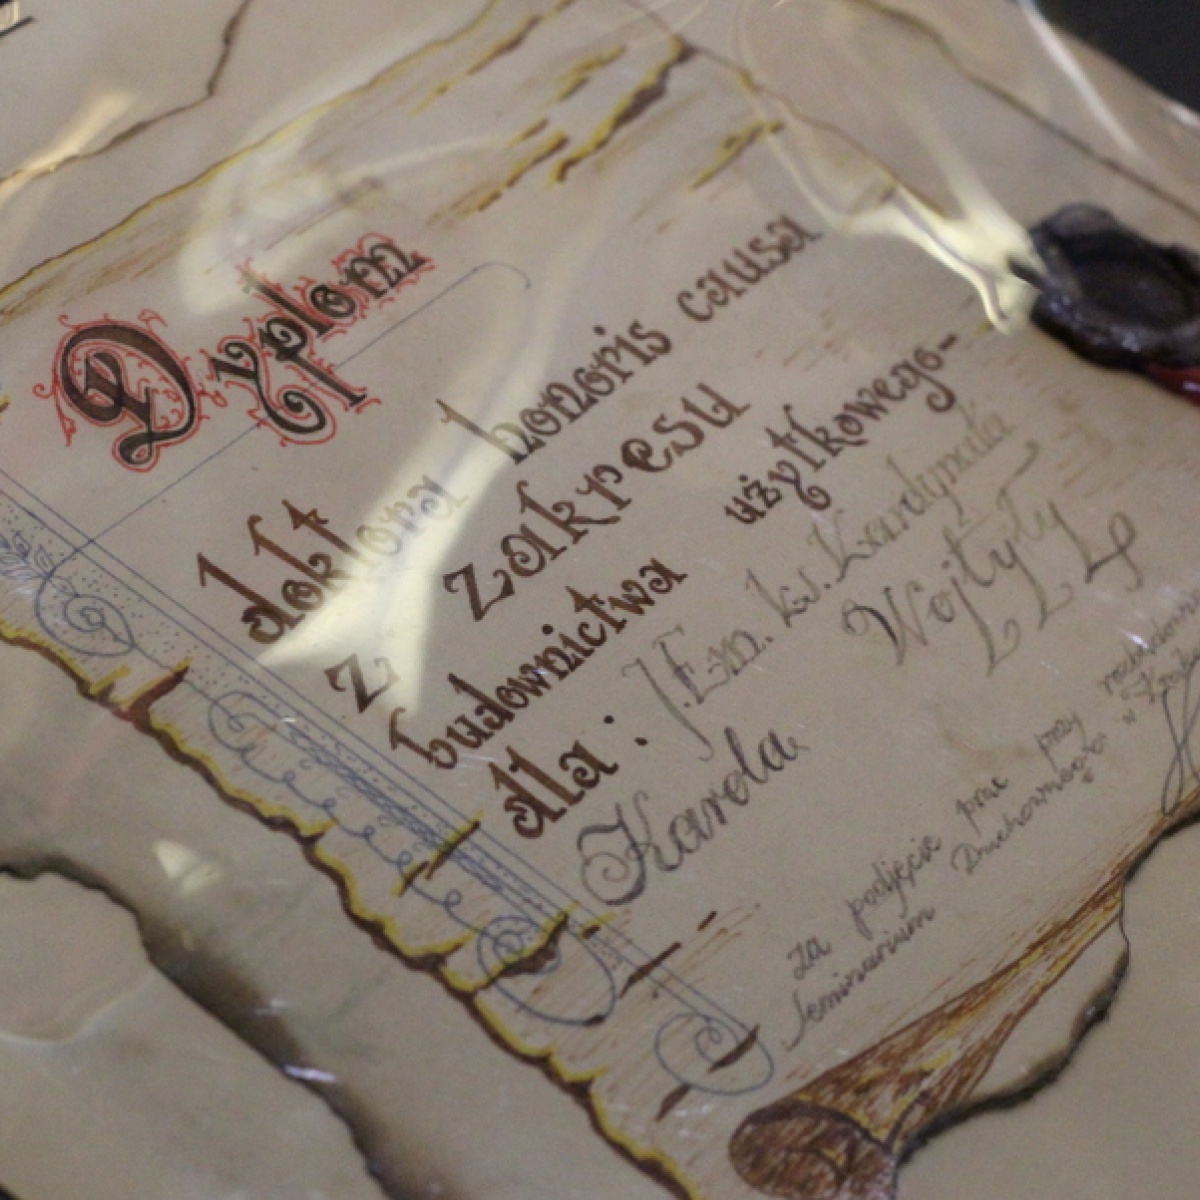 Dyplom
doktora honoris causa
z zakresu
budownictwa użytkowego-
dla: JEm. ks. Kardynała
Karola Wojtyły
za podjęcie prac przy
Seminarium Duchownego w